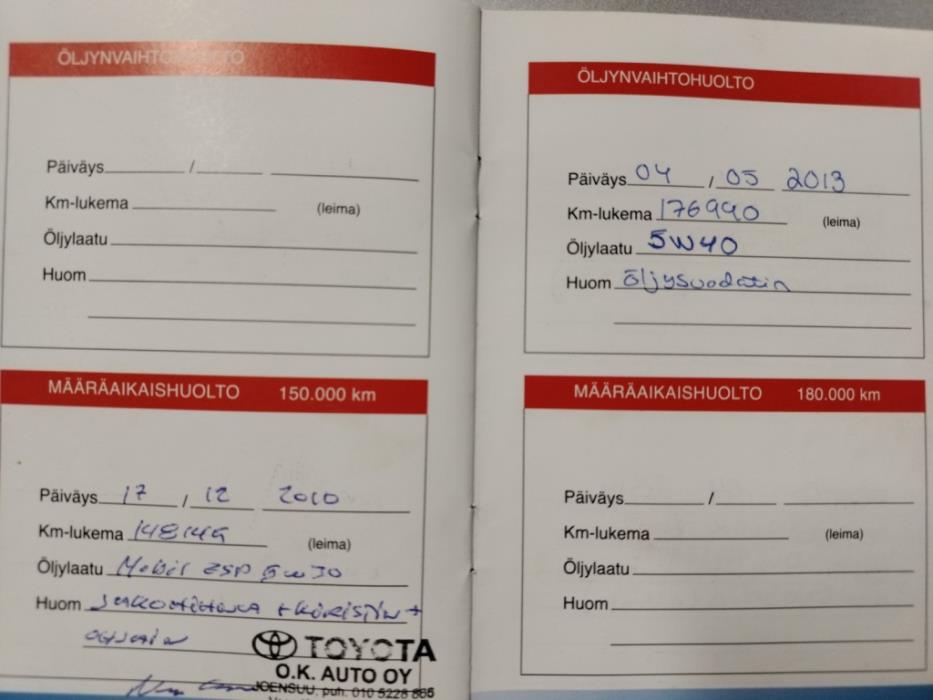 ÖLJYNVAIHTOHUOLTO
Päiväys /
Km-lukema (leima)
Öljylaatu
Huom
MÄÄRÄAIKAISHUOLTO 150.000 km
Päiväys 17 / 12 2010
Km-lukema 148149
(leima)
Öljylaatu Mobil ESP 5w30
Huom Jakohihna + kiristin +
ohjain
TOYOTA
O.K. AUTO OY
JOENSUU. puh. 010 5228 885
ÖLJYNVAIHTOHUOLTO
Päiväys 04 / 05 2013
Km-lukema 176990 (leima)
Öljylaatu 5W40
Huom öljysuodatin
MÄÄRÄAIKAISHUOLTO 180.000 km
Päiväys /
Km-lukema (leima)
Öljylaatu
Huom